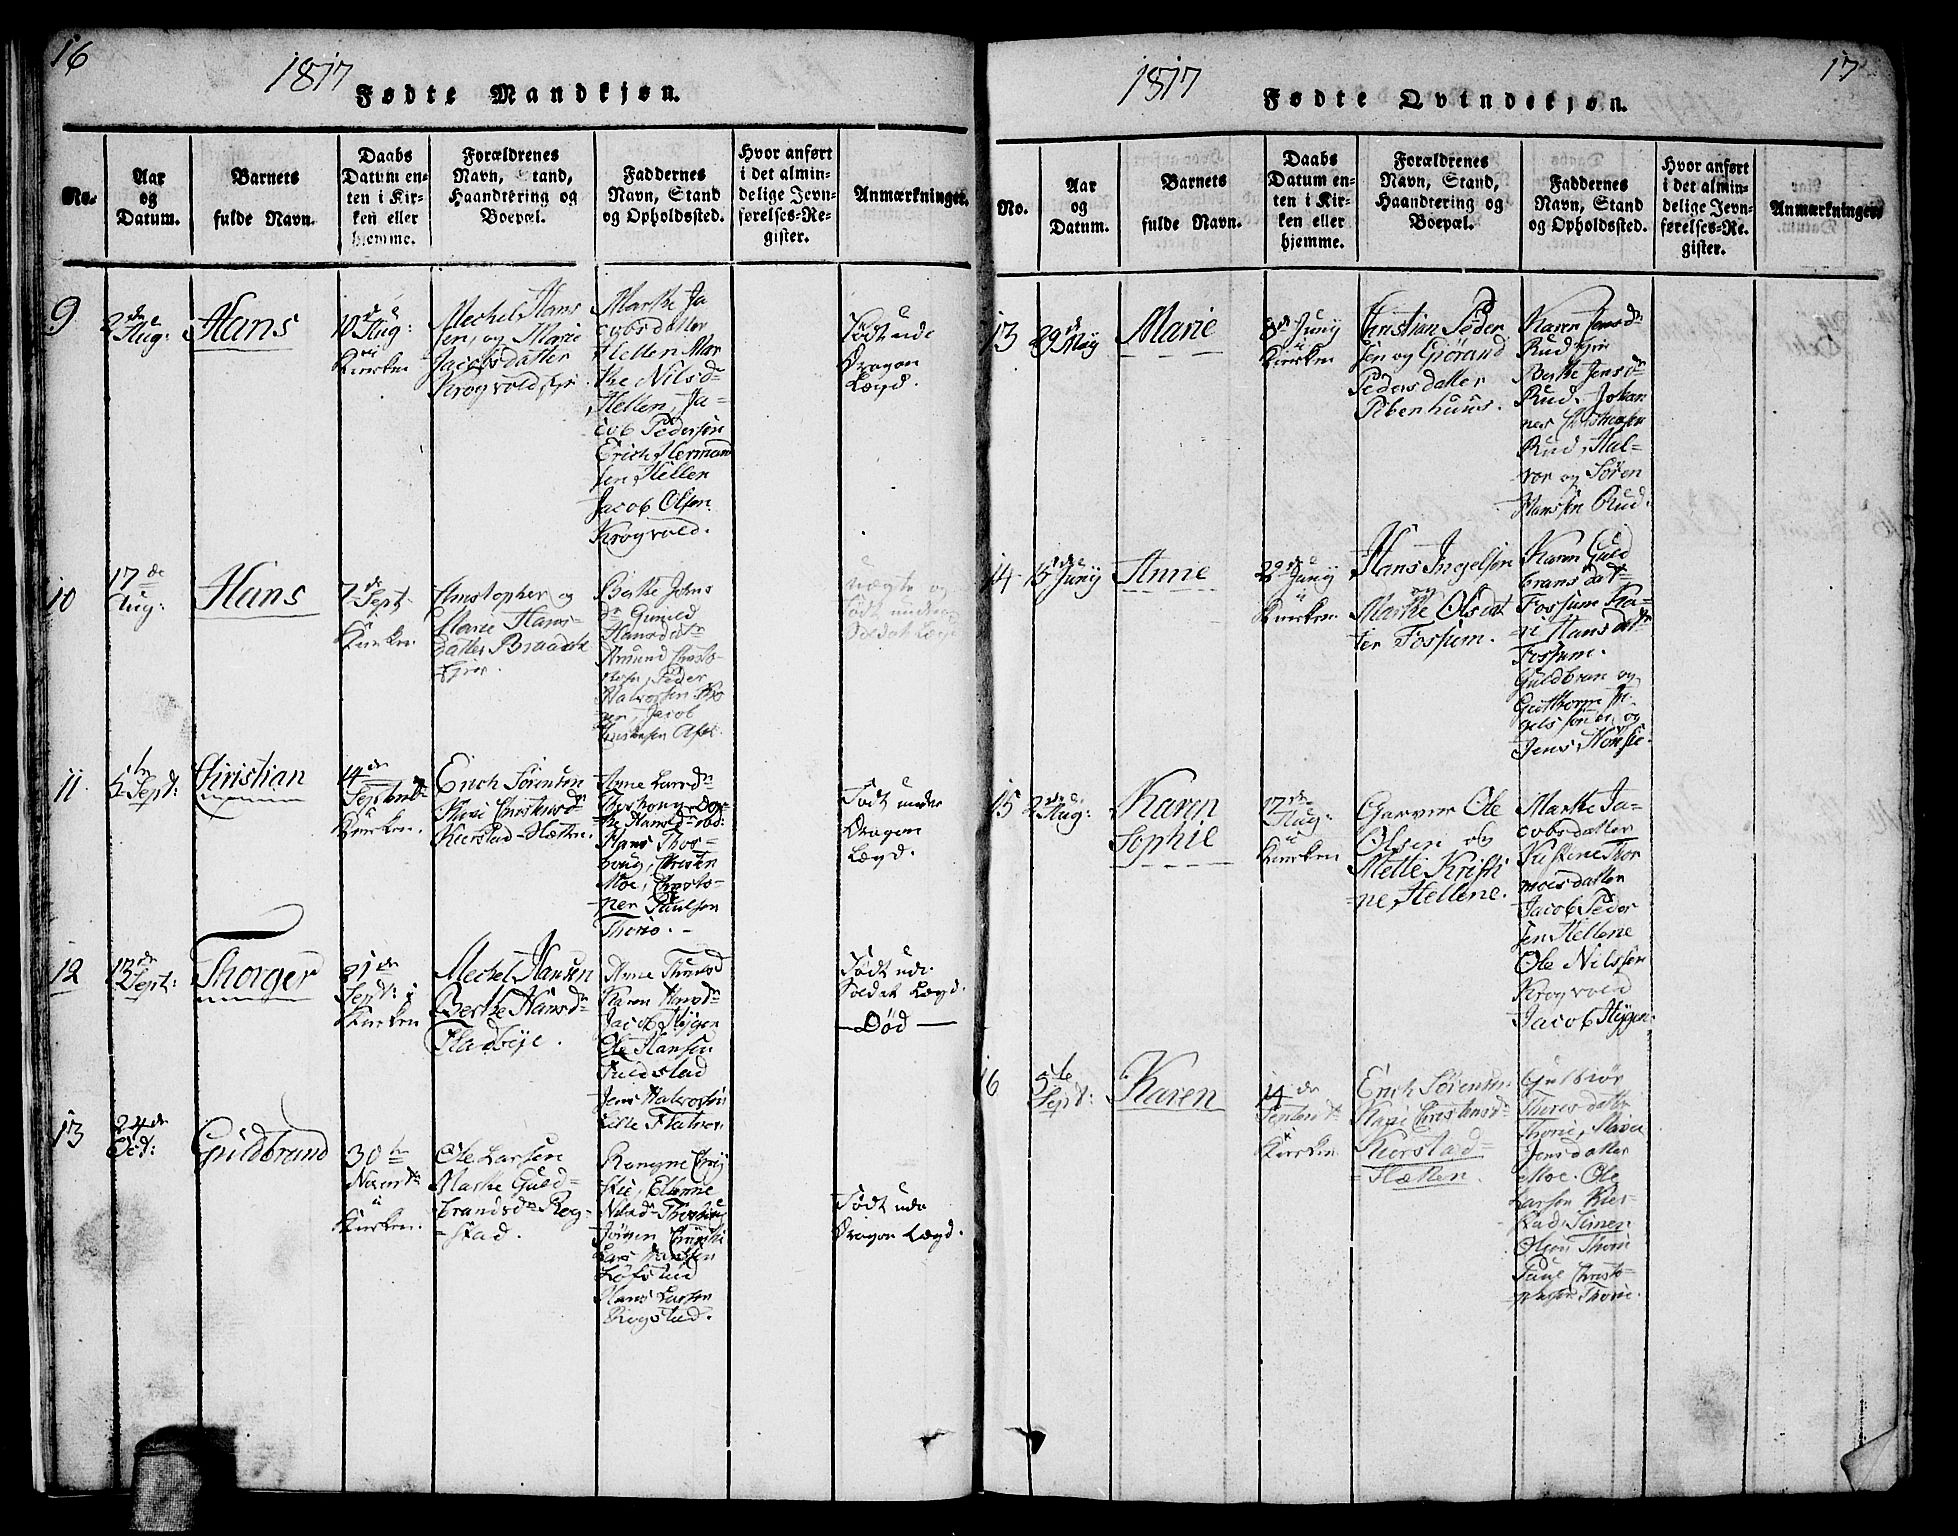 16
1817
Fødte Mandkjøn.
No.
Aar
og
Datum.
Barnets
fulde Navn.
Daabs
Datum en-
ten i Kir-
ken eller
hjemme.
Forældrenes
Navn, Stand,
Haandtering og
Boepæl.
Faddernes
Navn, Stand
og Opholdssted.
Hvor anført
i det almin-
delige Jevn-
førelses-Re-
gister.
Anmærkninger.
9
2de
Aug:
Hans
10de
Aug:
i
Kirken
Mechel Hans
sen, og Marie
Jacobsdatter
Krogvold
Marthe Ja
cobsdatter
Hellen Mar
the Nilsdr
Hellen, Ja-
cob Pedersøn
Erich Herman
sen, Hellen
Jacob Olsen
Krogvold.
Født i
Dragon
Lægd.
10
17de
Aug:
Hans
7de Sept.
i
Kirken.
Christopher og
Marie Hans-
datter Braat
Eier
Berthe Johns
dr Gunild
Hansdatr
Amund Christo-
Peder
Halvorsen
Jacob
uægte og
Født under
Soldat Lægd
11
Sept:
Christian
14de
Septembr
i
Kirken.
Erich Sørensen
Marie Christensdr
Kierstad-Hætten.
Anne Larsdr
Hans Thor-
Christen
Moe, Christo-
pher Paulsen
Thorie.
Født under
Dragon
Lægd.
12
13de
Sept:
Thorger
21de
Sept: i
Kirken
Mechel Hansen
Berthe Hansd-
Fladbye.
Anne
Karen Hansdr
Jacob Hygen
Ole Hansen
Fuldstad
Jens Halvorsen
Lille
Født
Soldat Lægd.
—Død—
13
24de
Oct:
Guldbrand
30te
Novembr
i
Kirken.
Ole Larsen
Marthe Guld-
brandsdr Reg-
stad.
Rangne
Jørgen
Lars Hansen
Løfstad
Hans Larsen
Rogstad.
Født
Dragon Lægd.
17
1817
Fødte Qvindekjøn.
No.
Aar
og
Datum.
Barnets
fulde Navn.
Daabs
Datum en-
ten i Kir-
ken eller
hjemme.
Forældrenes
Navn, Stand,
Haandtering og
Boepæl.
Faddernes
Navn, Stand
og Opholdssted.
Hvor anført
i det almin-
delige Jevn-
førelses-Re-
gister.
Anmærkninger.
13
29de May
Marie
8de Juny
i
Kirken
Christian Peder
sen og Giørand
Pedersdatter
Pibenhuus.
Karen Jensdr
Rud
Berthe Jensdr
Rud. Johan
nes Christensen
Rud, Hal-
vor og Søren
Hanssen Rud.
14
15de
Juny
Anne
29de
Juny
i
Kirken
Hans Ingelsøn
og
Marthe Olsdat
ter Fossum.
Karen Guld
bransdatr
Fossum Ka-
ri Hansdatr
Fossum.
Guldbran og
Gutthorm In-
gelssøner, og
Jens Norsie.
15
2de
Aug:
Karen
Sophie
17de
Aug:
i
Kirken
Garver Ole
Olsen og
Mette Kristi
ne, Hellene.
Marthe Ja-
cobsdatter
Kistine Thor
moesdatter
Jacob Peder
sen Hellene
Ole Nilssen
Krogvold
Jacob Hygen.
16
5te
Sept:
Karen
14de
Septembr
i
Kirken
Erich Sørensen
Marie Christensd-
Kierstad-
Hætten.
Guldbiør
Thoresdatter
Thorie, Maria
Jensdatter
Moe. Ole
Larsen Kier-
stad. Simen
Olsen Thorie
Paul Christo-
phersen Thorie.